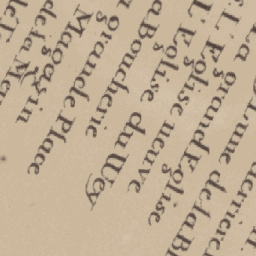 derriere
L'une de la Bl
La grand Eglise
L'Eglise neuve
L'Eglise du Wey
a Boucherie
grande Place
Magazin
de la Me